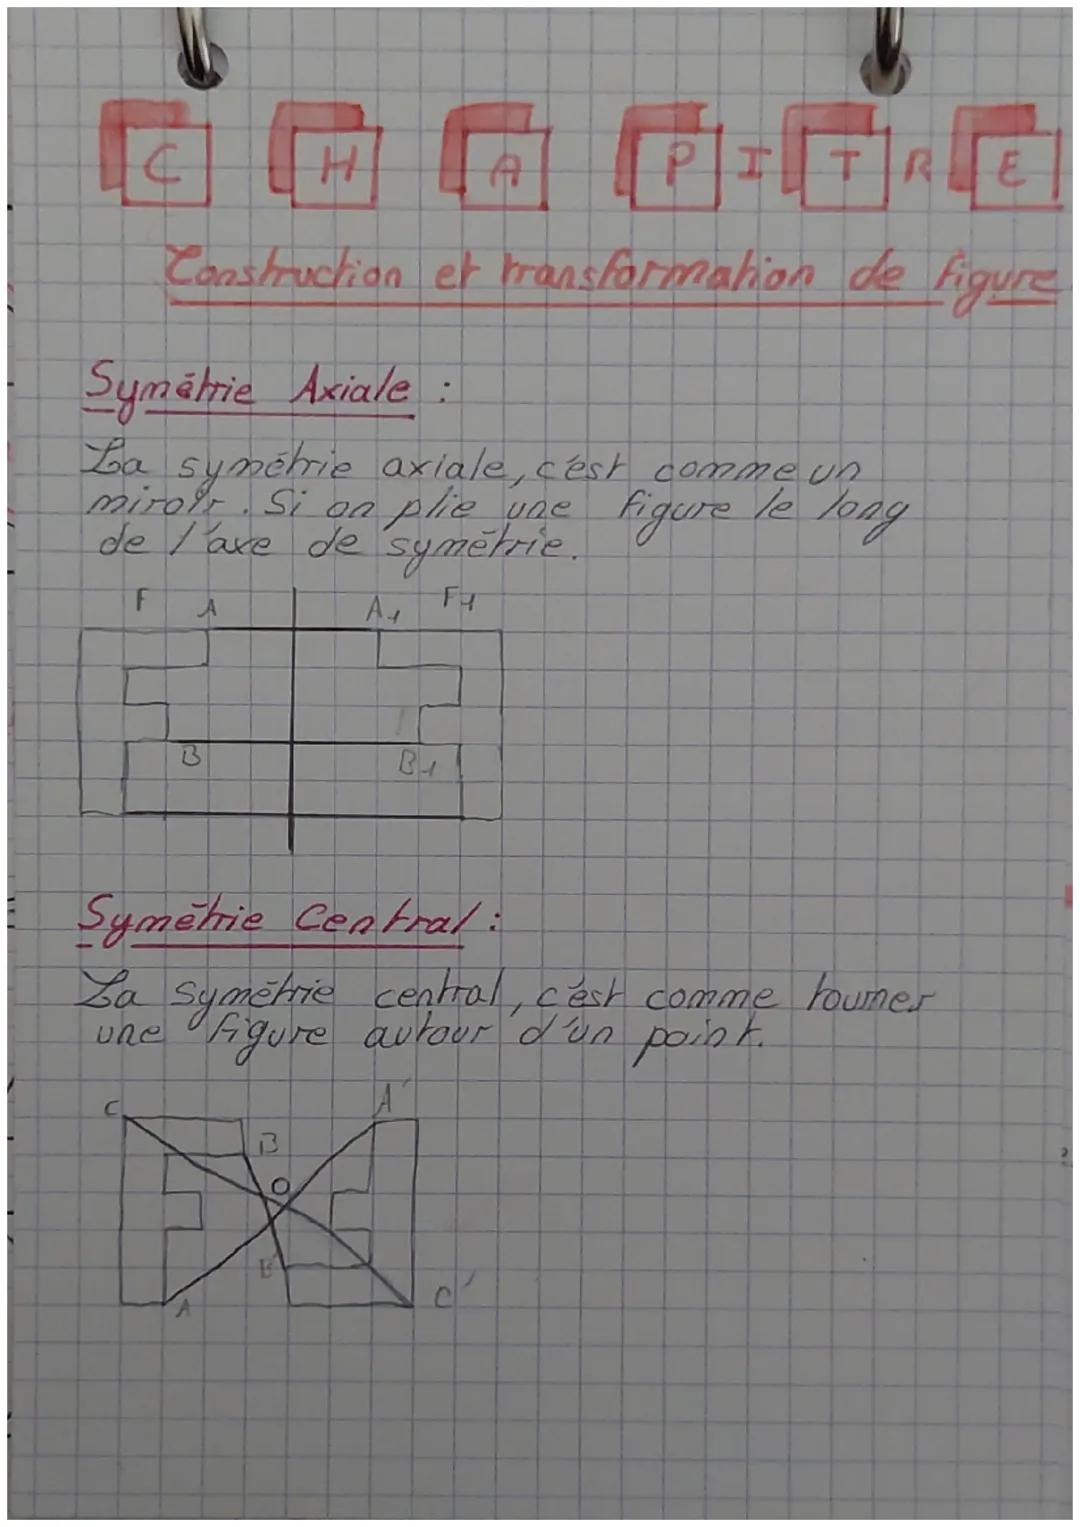 CHAPITRE
Construction et transformation de figure
Symétrie Axiale :
La symétrie axiale, c'est comme un
miroir. Si on plie une figure le long
de l'axe de symétrie.
F A A1 F1
B B1
Symétrie Central :
La symétrie central, c'est comme tourner
une figure autour d'un point.
C A'
B
O
B'
A C'